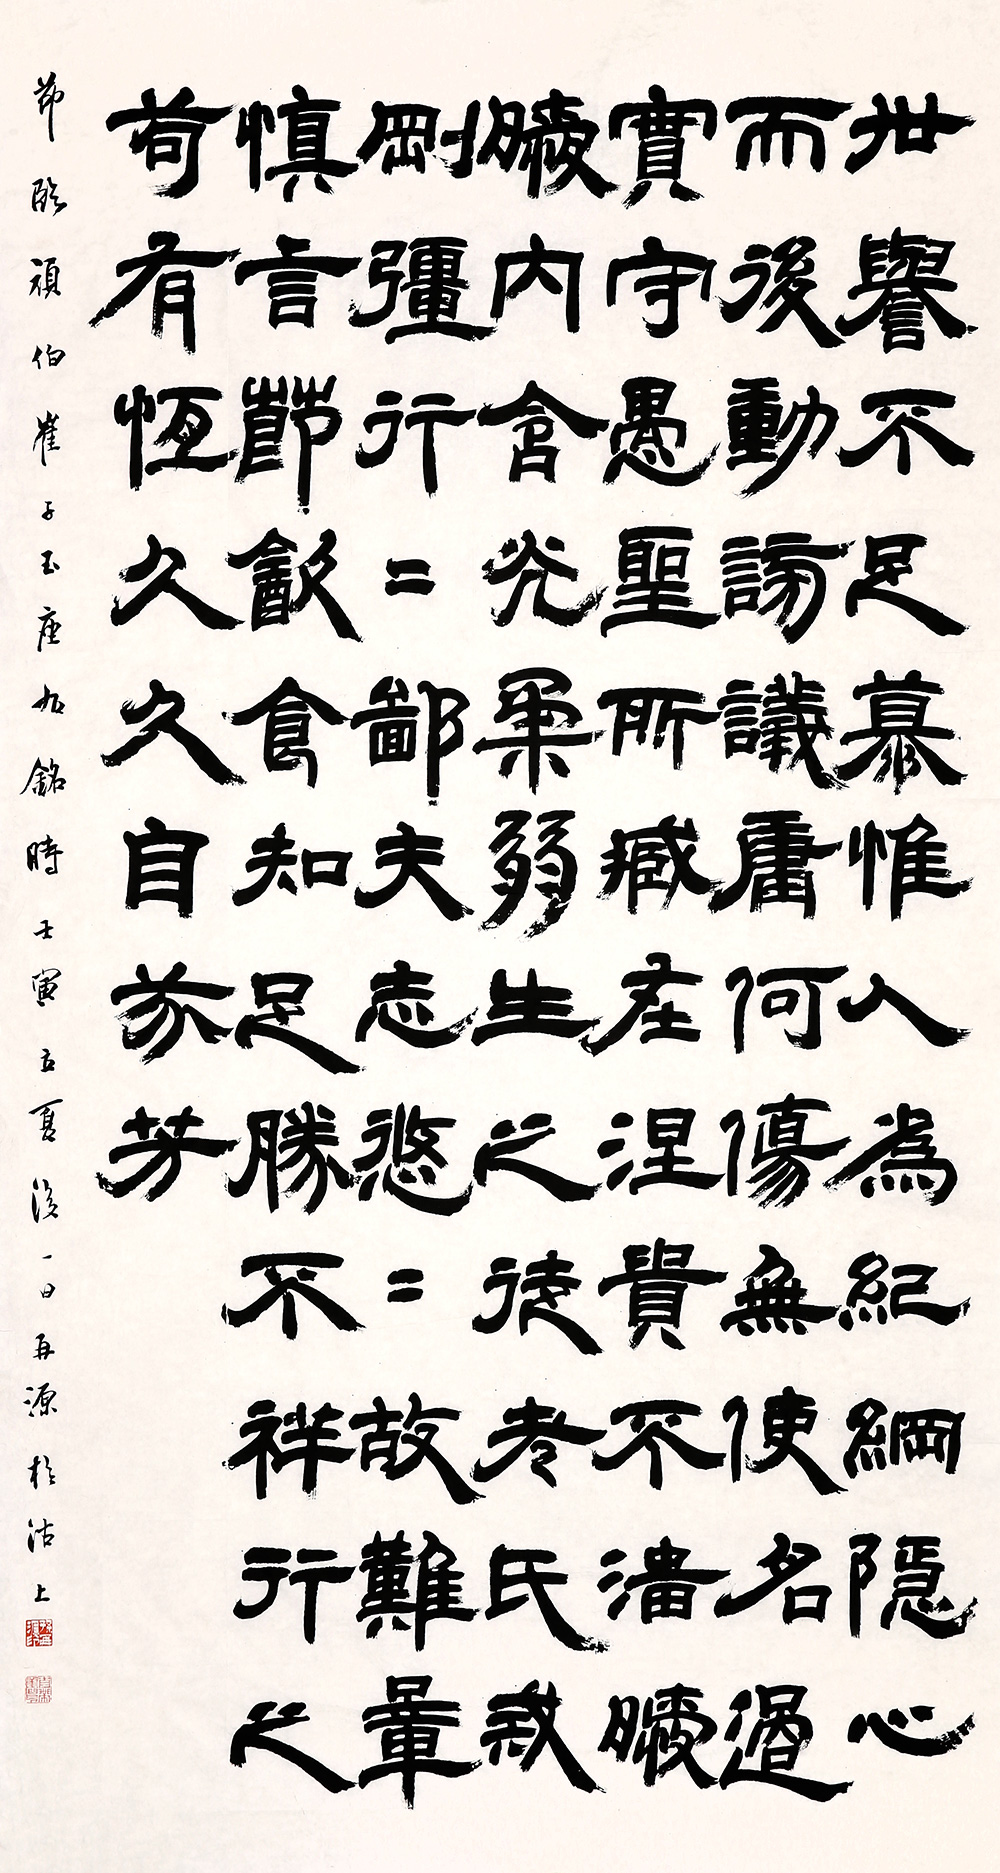 世譽不足慕惟人為紀綱隱心
而後動謗議庸何傷無使名過
實守愚聖所臧在涅貴不淄曖
曖內含光柔弱生之徒老氏戒
剛彊行=鄙夫志悠=故難量
慎言節㱃食知足勝不祥行之
苟有恆久久自芬芳
節臨頑伯崔子玉座右銘時壬寅立夏後一日再源於沽上